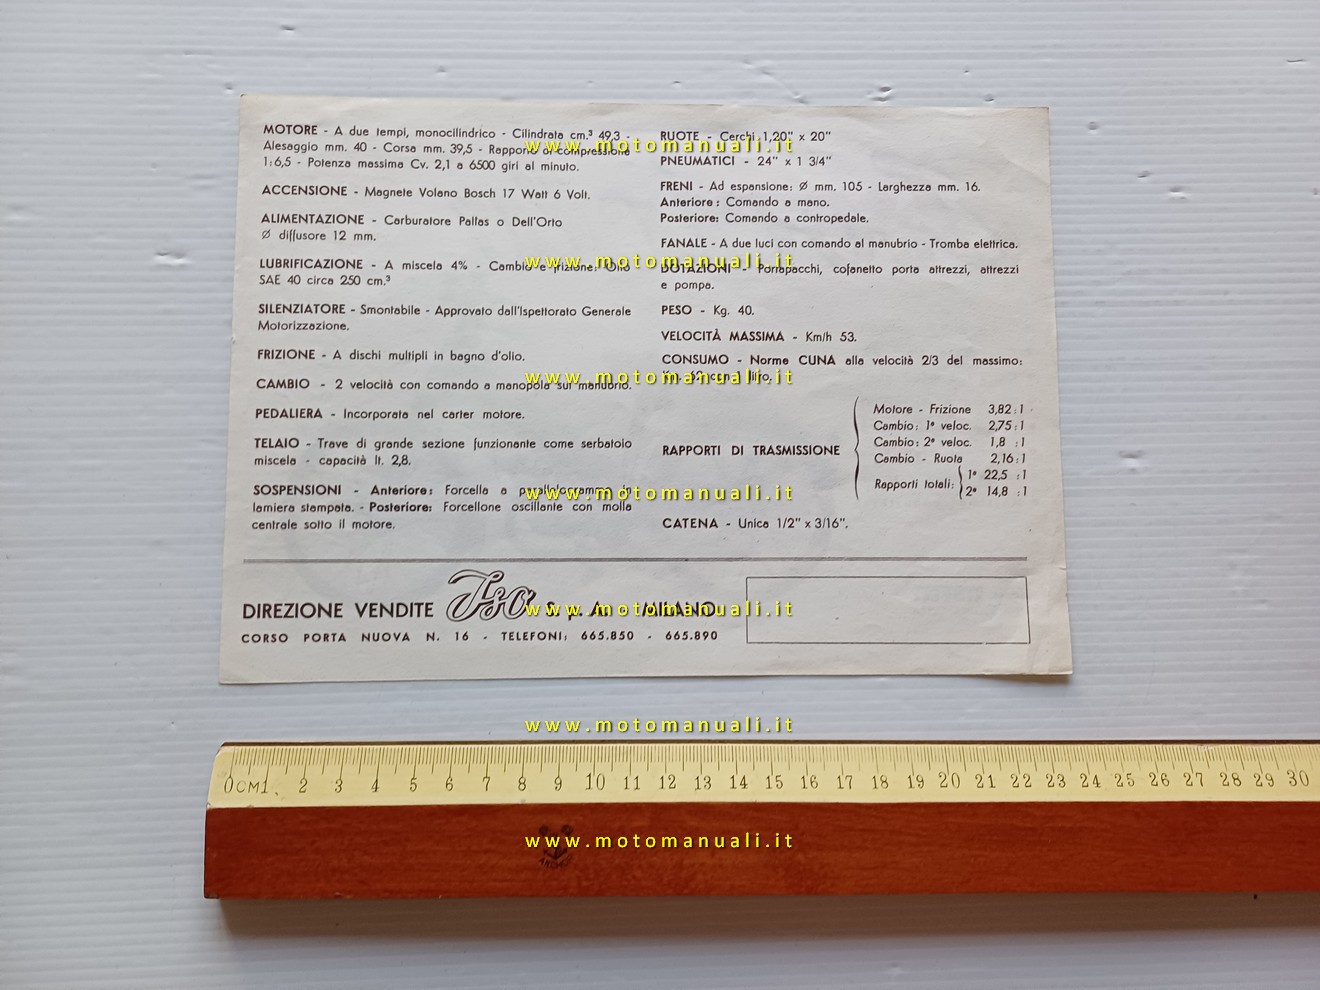 MOTORE - A due tempi, monocilindrico - Cilindrata cm.³ 49,3 -
Alesaggio mm. 40 - Corsa mm. 39,5 - Rapporto di compressione
1:6,5 - Potenza massima Cv. 2,1 a 6500 giri al minuto.
ACCENSIONE - Magnete Volano Bosch 17 Watt 6 Volt.
ALIMENTAZIONE - Carburatore Pallas o Dell'Orto
Ø diffusore 12 mm.
LUBRIFICAZIONE - A miscela 4% - Cambio e frizione: Olio
SAE 40 circa 250 cm.³
SILENZIATORE - Smontabile - Approvato dall'Ispettorato Generale
Motorizzazione.
FRIZIONE - A dischi multipli in bagno d'olio.
CAMBIO - 2 velocità con comando a manopola sul manubrio.
PEDALIERA - Incorporata nel carter motore.
TELAIO - Trave di grande sezione funzionante come serbatoio
miscela - capacità lt. 2,8.
SOSPENSIONI - Anteriore: Forcella a parallelogramma in
lamiera stampata. - Posteriore: Forcellone oscillante con molla
centrale sotto il motore.
RUOTE - Cerchi 1,20" x 20"
PNEUMATICI - 24" x 1 3/4"
FRENI - Ad espansione: Ø mm. 105 - Larghezza mm. 16.
Anteriore: Comando a mano.
Posteriore: Comando a contropedale.
FANALE - A due luci con comando al manubrio - Tromba elettrica.
DOTAZIONI - Portapacchi, cofanetto porta attrezzi, attrezzi
e pompa.
PESO - Kg. 40.
VELOCITÀ MASSIMA - Km/h 53.
CONSUMO - Norme CUNA alla velocità 2/3 del massimo:
Km. 62 con 1 litro.
RAPPORTI DI TRASMISSIONE
Motore - Frizione 3,82 : 1
Cambio: 1ª veloc. 2,75 : 1
Cambio: 2ª veloc. 1,8 : 1
Cambio - Ruota 2,16 : 1
Rapporti totali: 1ª 22,5 : 1
2ª 14,8 : 1
CATENA - Unica 1/2" x 3/16".
DIREZIONE VENDITE Iso S. p. A. - MILANO
CORSO PORTA NUOVA N. 16 - TELEFONI: 665.850 - 665.890
www.motomanuali.it
www.motomanuali.it
www.motomanuali.it
www.motomanuali.it
www.motomanuali.it
www.motomanuali.it
0CM1 2 3 4 5 6 7 8 9 10 11 12 13 14 15 16 17 18 19 20 21 22 23 24 25 26 27 28 29 30
www.motomanuali.it